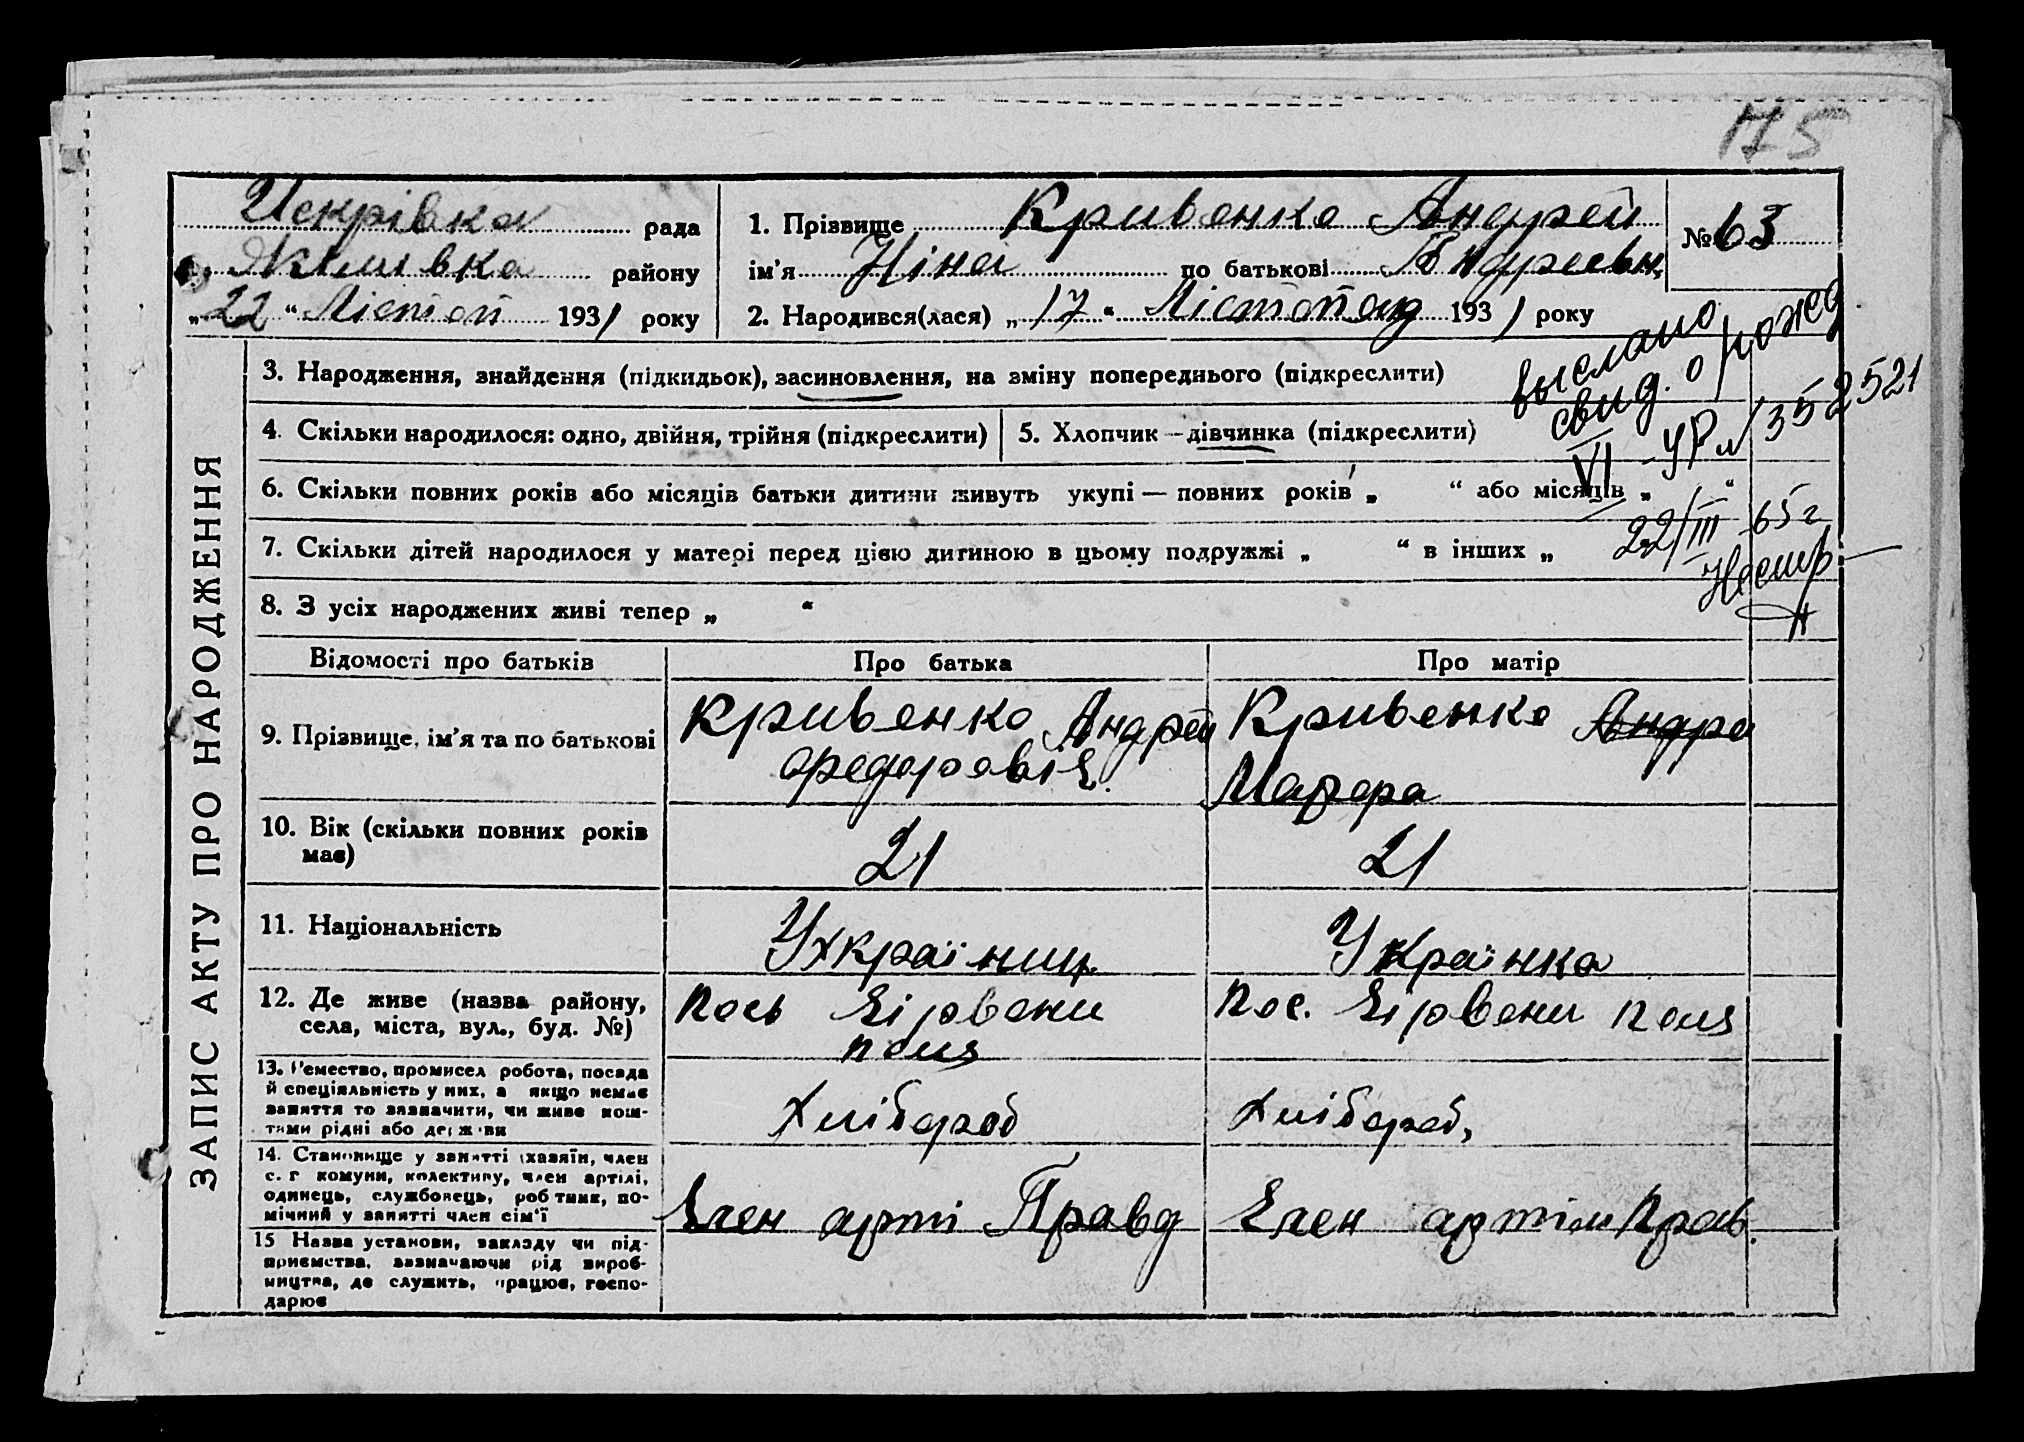 175
Искрівка рада
Якимівка району
„22“ Лістоп 1931 року
1. Прізвище Кривенко Андрей
ім'я Ніна по батькові Андреевн.
2. Народився(лася) „17“ Лістопад 1931 року
№ 63
ЗАПИС АКТУ ПРО НАРОДЖЕННЯ
3. Народження, знайдення (підкидьок), засиновлення, на зміну попереднього (підкреслити)
выслано
свид. о рожд
VI - УР № 352521
22/III 65 г
4. Скільки народилося: одно, двійня, трійня (підкреслити)
5. Хлопчик — дівчинка (підкреслити)
6. Скільки повних років або місяців батьки дитини живуть укупі — повних років „ “ або місяців „ “
7. Скільки дітей народилося у матері перед цією дитиною в цьому подружжі „ “ в інших „
8. З усіх народжених живі тепер „ “
Відомості про батьків Про батька Про матір
9. Прізвище, ім'я та по батькові
Кривенко Андрей
Федоровіч.
Кривенко Андре
10. Вік (скільки повних років
має)
21
21
11. Національність
Украінец
Українка
12. Де живе (назва району,
села, міста, вул., буд. №)
Пось Чірвени
поля
Пос. Чірвени поля
13. Ремество, промисел робота, посада
й спеціяльність у них, а якщо немає
заняття то зазначити, чи живе кош-
тами рідні або держави
Хлібороб
Хлібороб,
14. Становище у занятті (хазяїн, член
с. г комуни, колективу, член артілі,
одинець, службовець, робітник, по-
мічний у занятті член сім'ї
Член арті Правд
Член артіли Прав.
15 Назва установи, закладу чи під-
приємства, зазначаючи рід вироб-
ництва, де служить, працює, госпо-
дарює